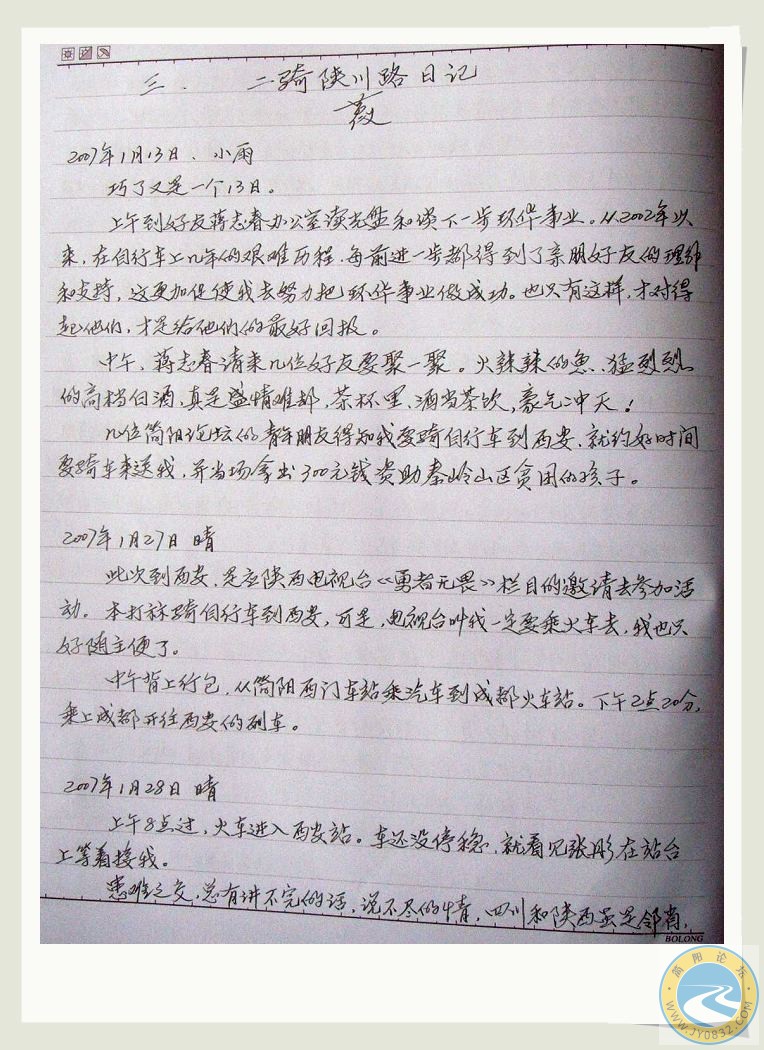 三. 二骑陕川路日记
2007年1月13日、小雨
巧了又是一个13日。
上午到好友蒋志春办公室读光盘和谈下一步环华事业。从2002年以
来,在自行车上几年的艰难历程,每前进一步都得到了亲朋好友的理解
和支持,这更加促使我去努力把环华事业做成功。也只有这样,才对得
起他们,才是给他们的最好回报。
中午,蒋志春请来几位好友要聚一聚。火辣辣的鱼、猛烈烈
的高档白酒,真是盛情难却,茶杯里,酒当茶饮,豪气冲天!
几位简阳论坛的青年朋友得知我要骑自行车到西安,就约好时间
要骑车来送我,并当场拿出300元钱资助秦岭山区贫困的孩子。
2007年1月27日 晴
此次到西安,是应陕西电视台《勇者无畏》栏目的邀请去参加活
动。本打祘骑自行车到西安,可是,电视台叫我一定要乘火车去,我也只
好随主便了。
中午背上行包,从简阳西门车站乘汽车到成都火车站。下午2点20分,
乘上成都开往西安的列车。
2007年1月28日 晴
上午8点过,火车进入西安站。车还没停稳,就看见张彤在站台
上等着接我。
患难之交,总有讲不完的话,说不尽的情,四川和陕西虽是邻省,
BOLONG
简阳论坛
WWW.JY0832.COM